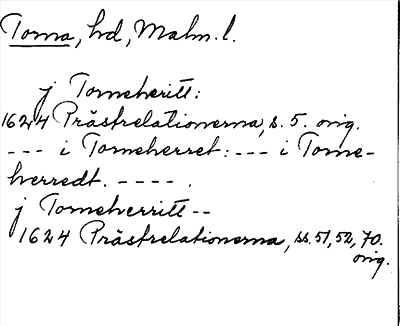 Torna, hd, Malm. l.
j Torneheritt:
1624 Prästrelationerna, s. 5. orig.
--- i Torneherret: --- i Torne-
herredt. ----.
j Torneherritt --
1624 Prästrelationerna, ss. 51, 52, 70.
orig.